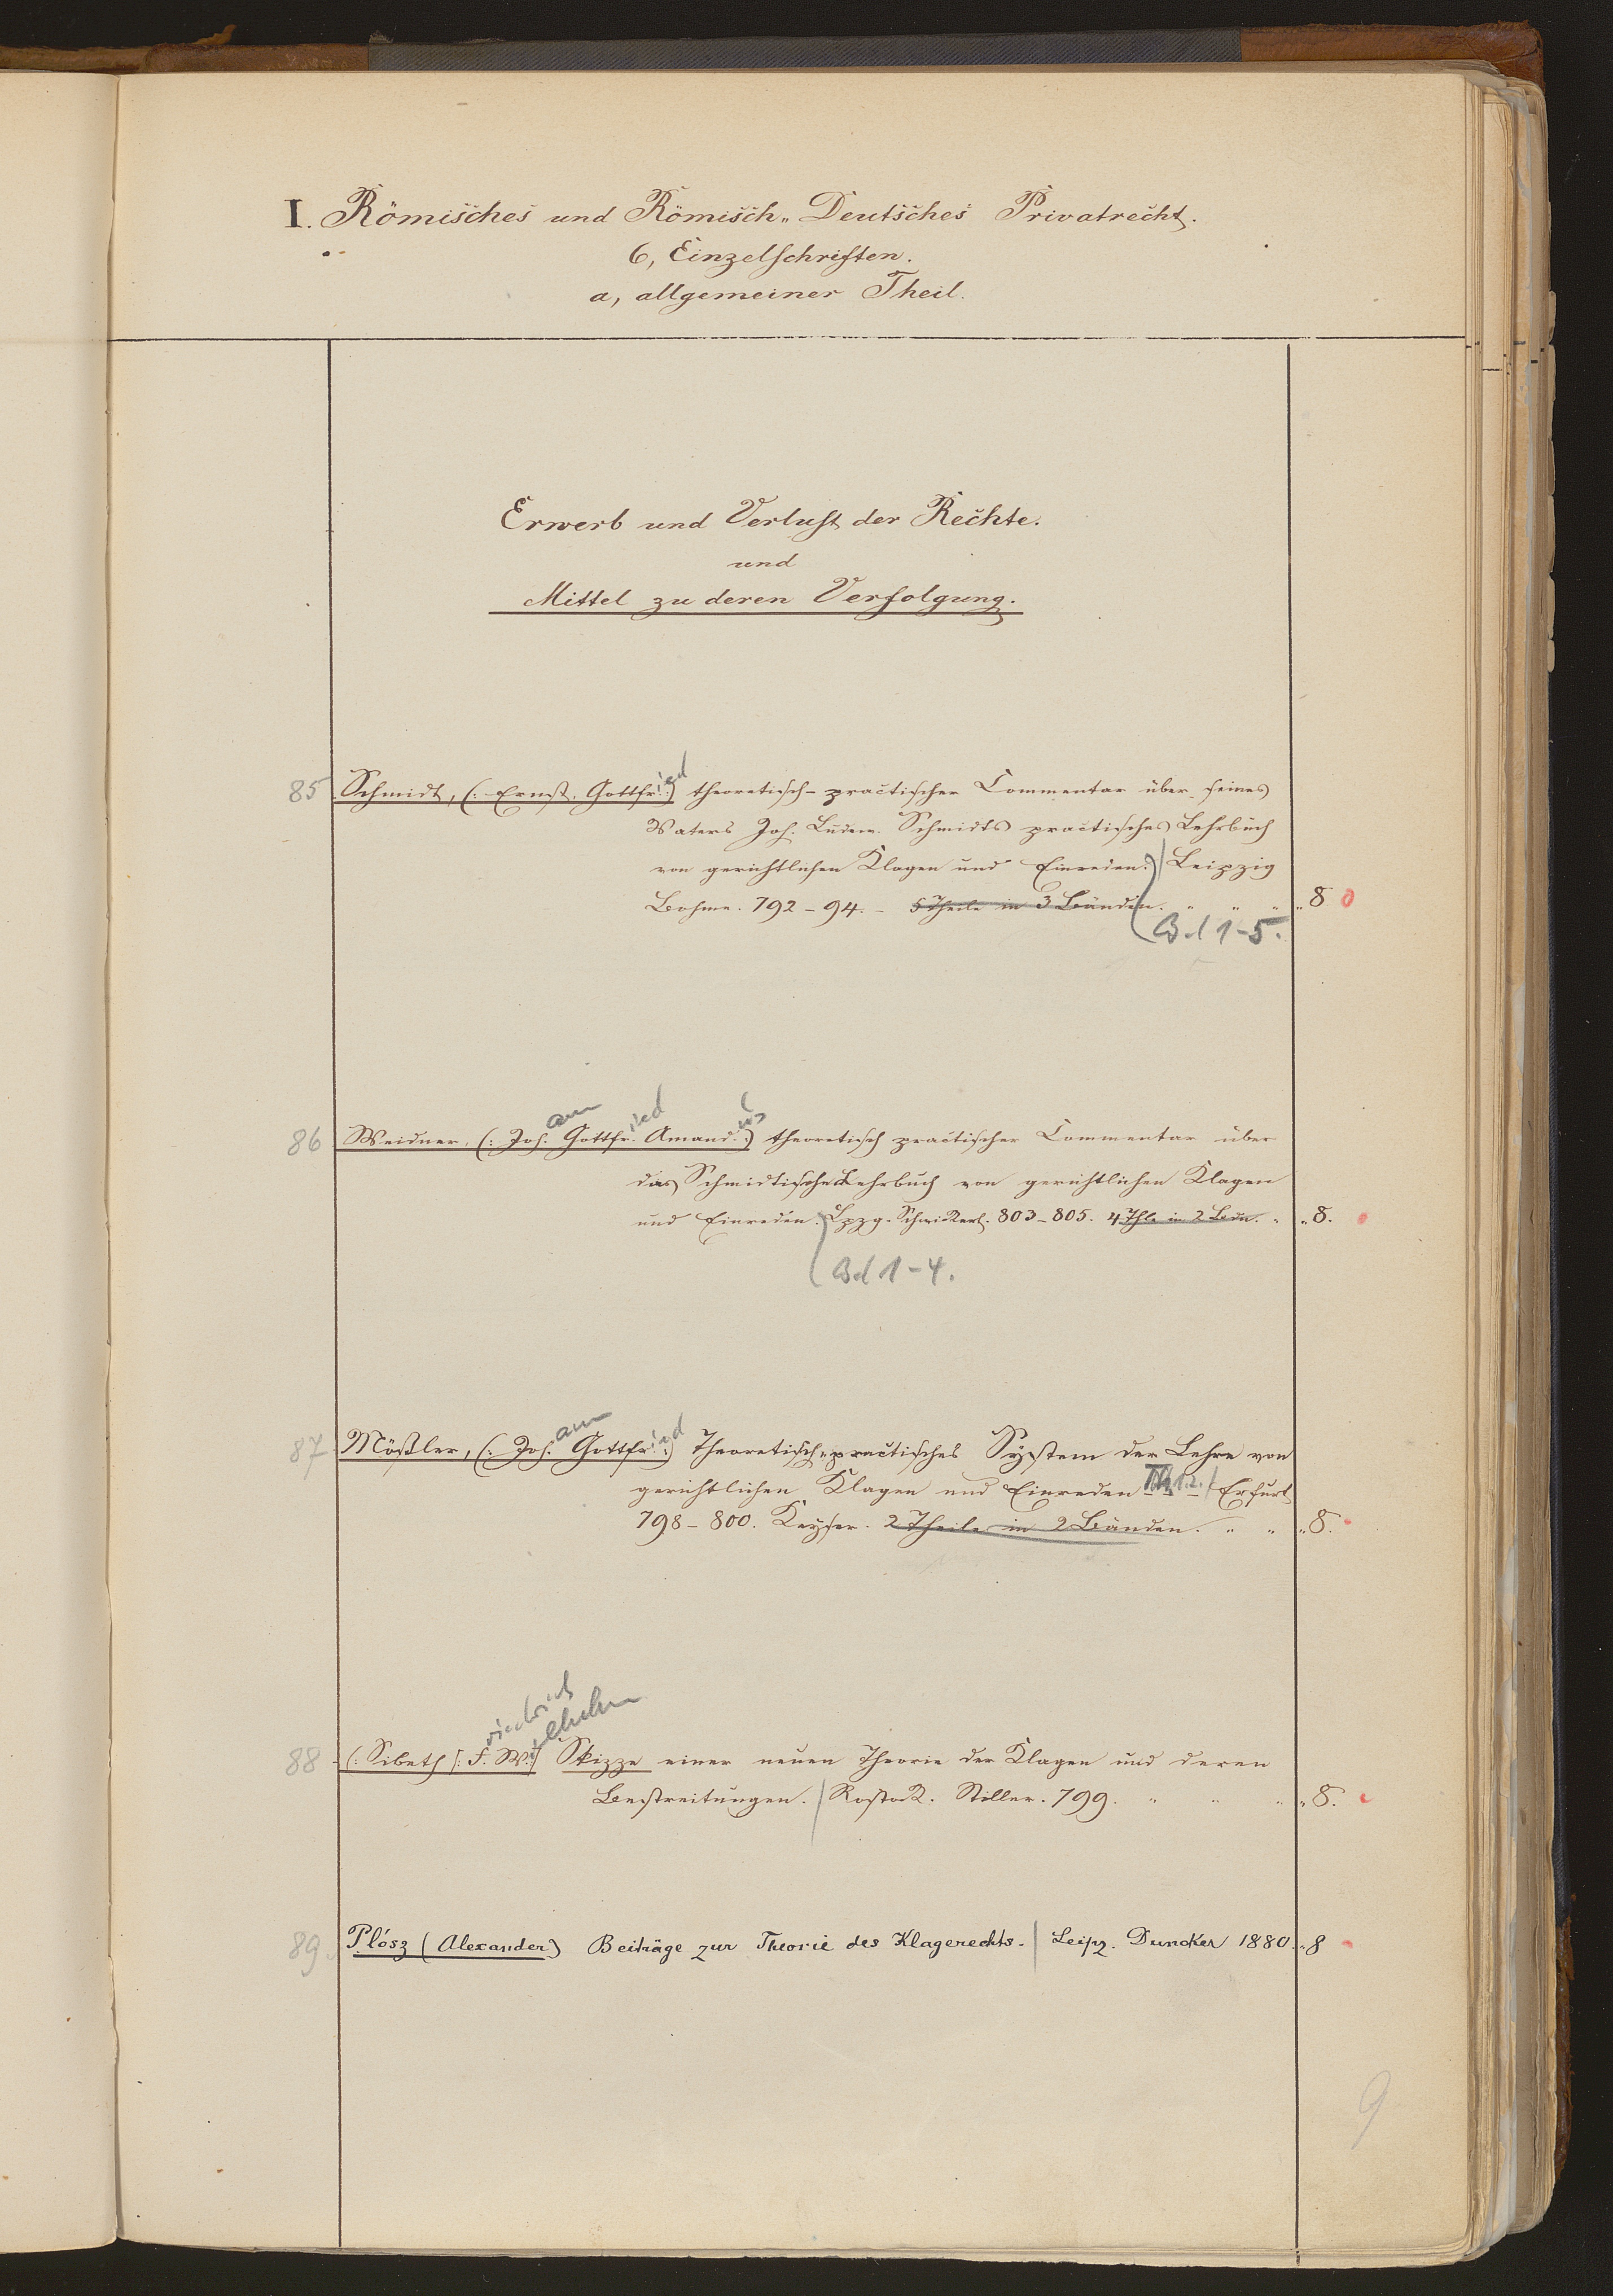 I. Römisches und Römisch„Deutsches Privatrecht.
6, Einzelschriften.
a, allgemeiner Theil.
Erwerb und Verlust der Rechte.
und
Mittel zu deren Verfolgung.
85 Schmidt, (: Ernst. Gottfr.ied :) theoretisch-practischer Commentar über seines
Vaters Joh. Ludew. Schmidts practisches Lehrbuch
von gerichtlichen Klagen und Einreden. / Leipzig
Bohme. 792-94. - 5 Theile in 3 Bänden. " " " „8
Bd 1-5.
86 Weidner, (: Joh.ann Gottfr.ied Amand.us :) theoretisch practischer Commentar über
das Schmidtische Lehrbuch von gerichtlichen Klagen
und Einreden. Lpzg. Schwickert. 803-805. 4 Thle in 2 Bdn. " „8.
Bd 1-4.
87 Mößler, (: Joh.ann Gottfr.ied :) Theoretisch„practisches System der Lehre von
gerichtlichen Klagen und Einreden Th 1.2. / Erfurt
798-800. Keyser. 2 Theile in 2 Bänden. " " „8.
88 (: Sibeth [: F.riedrich W.ilhelm :] Skizze einer neuen Theorie der Klagen und deren
Bestreitungen. / Rostock. Stiller. 799. " " " „8.
89. Plósz (Alexander) Beiträge zur Theorie des Klagerechts. | Leipz. Duncker 1880. „8
9